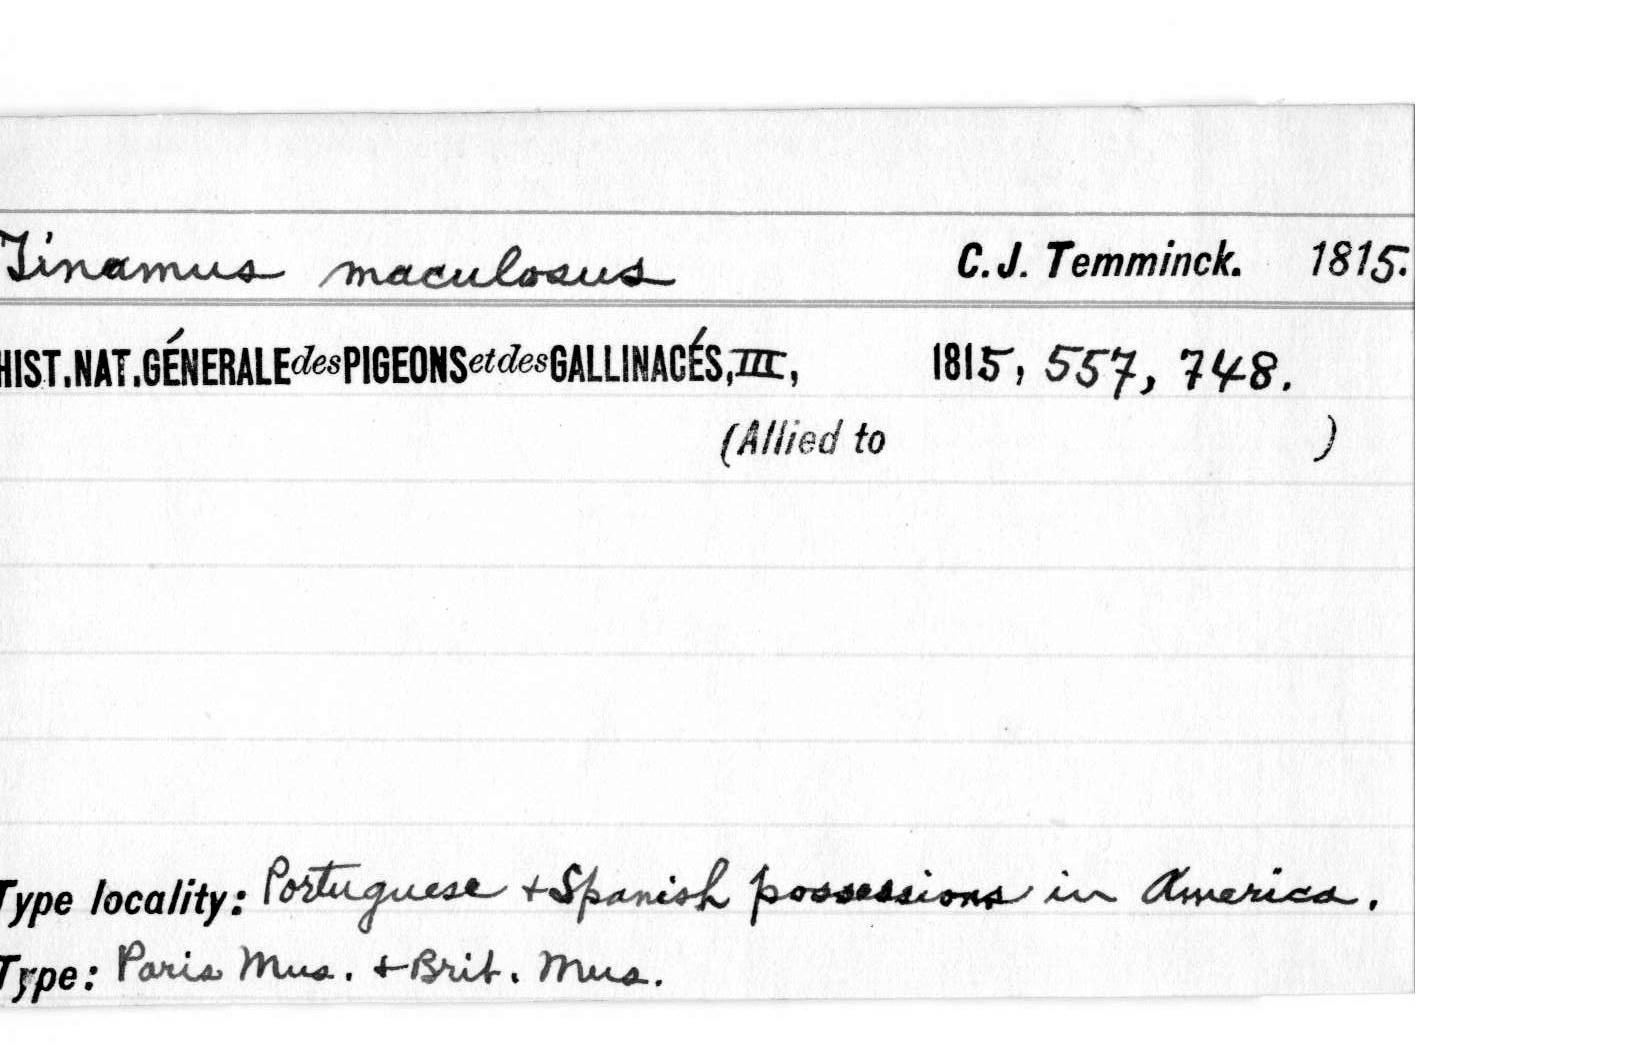 Tinamus maculosus C.J. Temminck. 1815.
HIST.NAT.GÉNERALE des PIGEONS et des GALLINACÉS, III, 1815, 557, 748.
(Allied to )
Type locality: Portuguese + Spanish possessions in America.
Type: Paris Mus. + Brit. Mus.